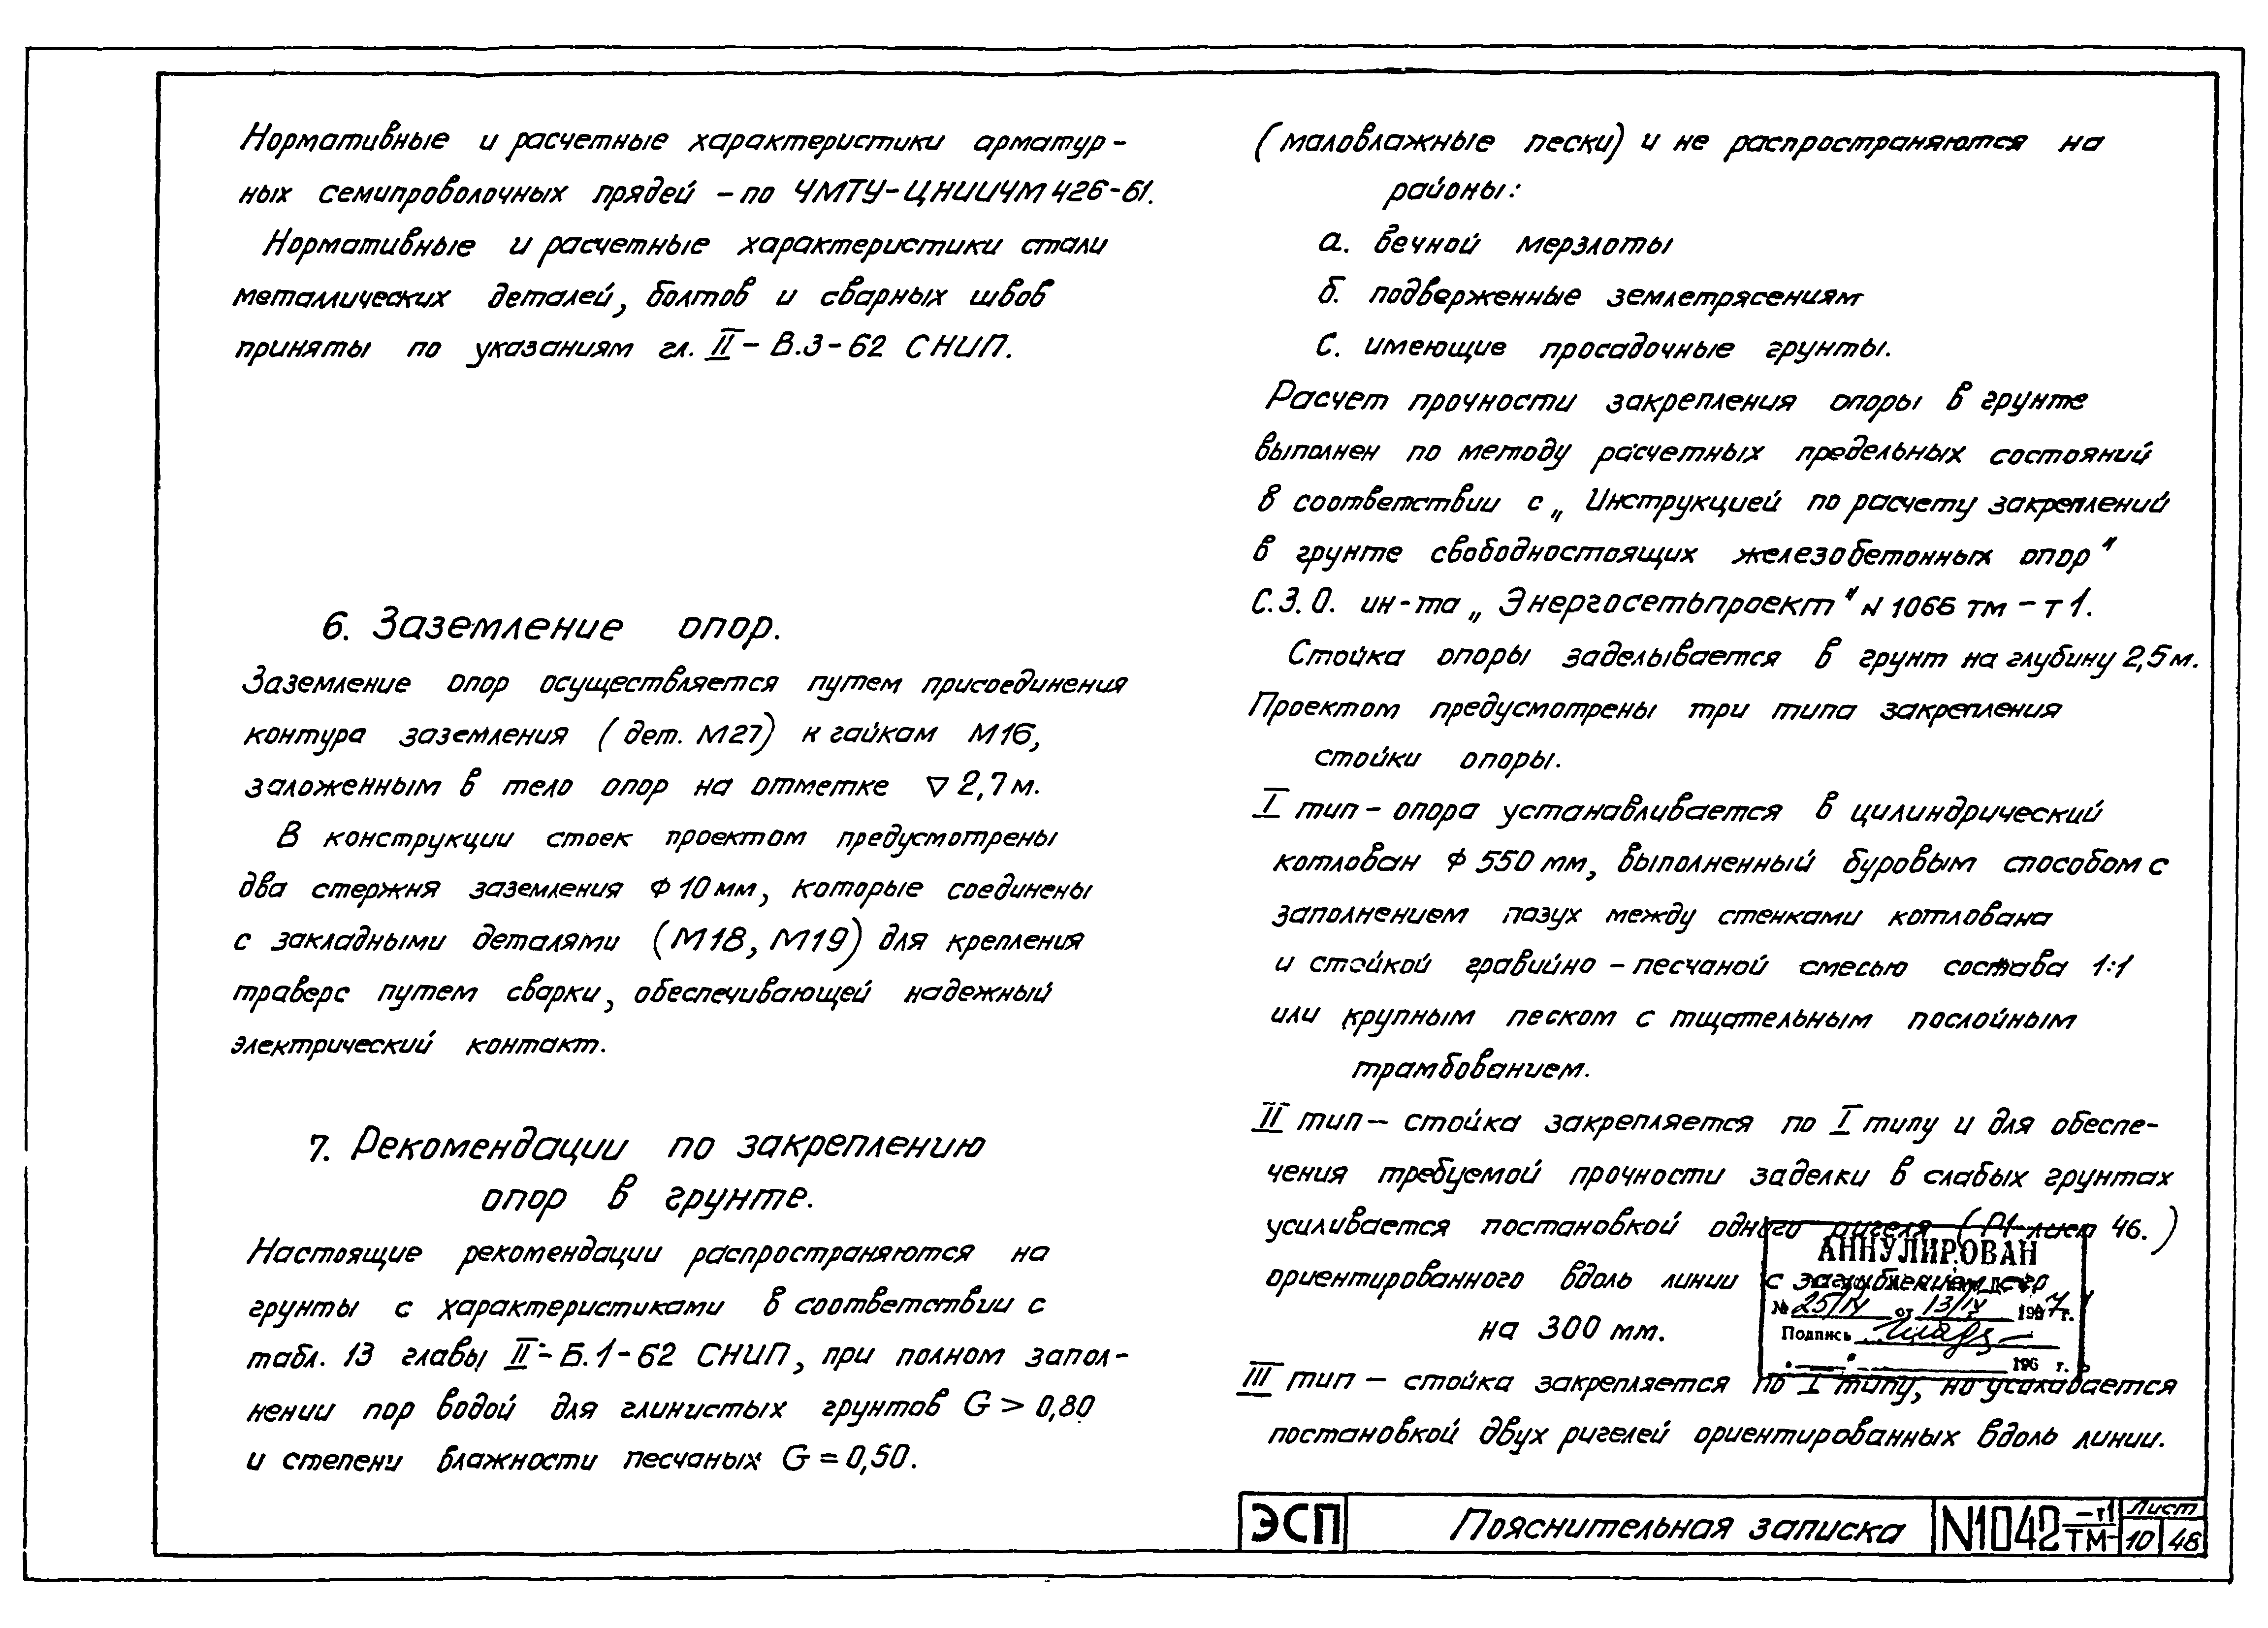 Нормативные и расчетные характеристики арматур-
ных семипроволочных прядей - по ЧМТУ-ЦНИИЧМ 426-61.
Нормативные и расчетные характеристики стали
металлических деталей, болтов и сварных швов
приняты по указаниям гл. II - В.3-62 СНИП.
6. Заземление опор.
Заземление опор осуществляется путем присоединения
контура заземления (дет. М27) к гайкам М16,
заложенным в тело опор на отметке ▽ 2,7м.
В конструкции стоек проектом предусмотрены
два стержня заземления Ф10мм, которые соединены
с закладными деталями (М18, М19) для крепления
траверс путем сварки, обеспечивающей надежный
электрический контакт.
7. Рекомендации по закреплению
опор в грунте.
Настоящие рекомендации распространяются на
грунты с характеристиками в соответствии с
табл. 13 главы II-Б.1-62 СНИП, при полном запол-
нении пор водой для глинистых грунтов G > 0,80
и степени влажности песчаных G = 0,50.
(маловлажные пески) и не распространяются на
районы:
а. вечной мерзлоты
б. подверженные землетрясениям
с. имеющие просадочные грунты.
Расчет прочности закрепления опоры в грунте
выполнен по методу расчетных предельных состояний
в соответствии с „Инструкцией по расчету закреплений
в грунте свободностоящих железобетонных опор"
С.З.О. ин-та „Энергосетьпроект" N 1066 тм - т1.
Стойка опоры заделывается в грунт на глубину 2,5м.
Проектом предусмотрены три типа закрепления
стойки опоры.
I тип - опора устанавливается в цилиндрический
котлован Ф 550 мм, выполненный буровым способом с
заполнением пазух между стенками котлована
и стойкой гравийно-песчаной смесью состава 1:1
или крупным песком с тщательным послойным
трамбованием.
II тип - стойка закрепляется по I типу и для обеспе-
чения требуемой прочности заделки в слабых грунтах
усиливается постановкой одного ригеля (Р1 лист 46.)
ориентированного вдоль линии с заглублением его
на 300 мм.
III тип - стойка закрепляется по I типу, но усиливается
постановкой двух ригелей ориентированных вдоль линии.
АННУЛИРОВАН
№ 25/IX от 13/IX 1967 г.
Подпись
196 г.
ЭСП Пояснительная записка N1042тм-т1 Лист
10 46